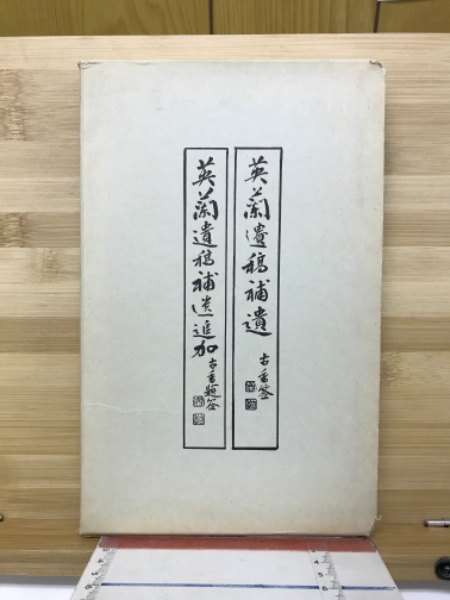 英蘭遺稿補遺
古香签
英蘭遺稿補遺追加
古香題签